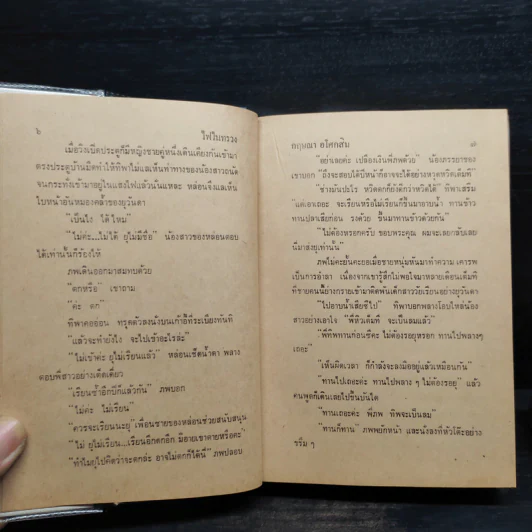 ๖ ไฟในทรวง
เมื่อวิ่งเปิดประตูก็มีหญิงชายคู่หนึ่งเดินเคียงกันเข้ามา
ตรงประตูบ้านมืดทำให้ทิพาไม่แลเห็นท่าทางของน้องสาวถนัด
จนกระทั่งเข้ามาอยู่ในแสงไฟแล้วนั่นแหละ หล่อนจึงแลเห็น
ใบหน้าอันหมองคล้ำของยุวันดา
"เป็นไง ได้ไหม"
"ไม่ค่ะ...ไม่ได้ ยุไม่มีชื่อ" น้องสาวของหล่อนตอบ
ได้เท่านั้นก็ร้องไห้
ภพเดินออกมาสมทบด้วย
"ตกหรือ" เขาถาม
"ค่ะ ตก"
ทิพาคออ่อน ทรุดตัวลงนั่งบนเก้าอี้ที่ระเบียงทันที
"แล้วจะทำยังไง จะไปเข้าอะไรล่ะ"
"ไม่เข้าค่ะ ยุไม่เรียนแล้ว" หล่อนเช็ดน้ำตา พลาง
ตอบพี่สาวอย่างเด็ดเดี่ยว
"เรียนซ้ำอีกปีก็แล้วกัน" ภพบอก
"ไม่ค่ะ ไม่เรียน"
"ควรจะเรียนนะยุ" เพื่อนชายของหล่อนช่วยสนับสนุน
"ไม่ ยุไม่เรียน...เรียนอีกตกอีก มิอายเขาตายหรือคะ"
"ทำไมยุไปคิดว่าจะตกล่ะ อาจไม่ตกก็ได้นี่" ภพปลอบ
กฤษณา อโศกสิน ๗
"อย่าเลยค่ะ เปลืองเงินพี่ภพด้วย" น้องภรรยาของ
เขาบอก "ถึงจะสอบได้ปีหน้าก็อาจจะได้อย่างหวุดหวิดเต็มที"
"ช่างมันปะไร หวิดตกก็ยังดีกว่าหวิดได้" ทิพาเสริม
"แต่เอาเถอะ จะเรียนหรือไม่เรียนก็ขึ้นมาอาบน้ำ ทานข้าว
"ไม่ต้องหรอกครับ ขอบพระคุณ ผมจะเลยกลับเลย
นี่มาส่งยุเท่านั้น"
เป็นการอำลา เนื่องจากเขารู้สึกไม่พอใจมาหลายเดือนเต็มที
"ไปอาบน้ำเสียซีไป" ทิพาบอกพลางโอบไหล่น้อง
สาวอย่างเอาใจ "พี่หิวเต็มที จะเป็นลมแล้ว"
"พี่ทิพทานก่อนซีคะ ไม่ต้องรอยุหรอก ทานไปพลางๆ
เถอะ"
"เห็นผิดเวลา ก็กำลังจะลงมืออยู่แล้วเหมือนกัน"
"ทานไปเถอะค่ะ ทานไปพลาง ๆ ไม่ต้องรอยุ" แล้ว
คนพูดก็เดินเลยไปขึ้นบันได
"ทานเถอะค่ะ พี่ภพ ทิพจะเป็นลม"
"ทานก็ทาน" ภพพยักหน้า และนั่งลงที่หัวโต๊ะอย่าง
ขรึม ๆ